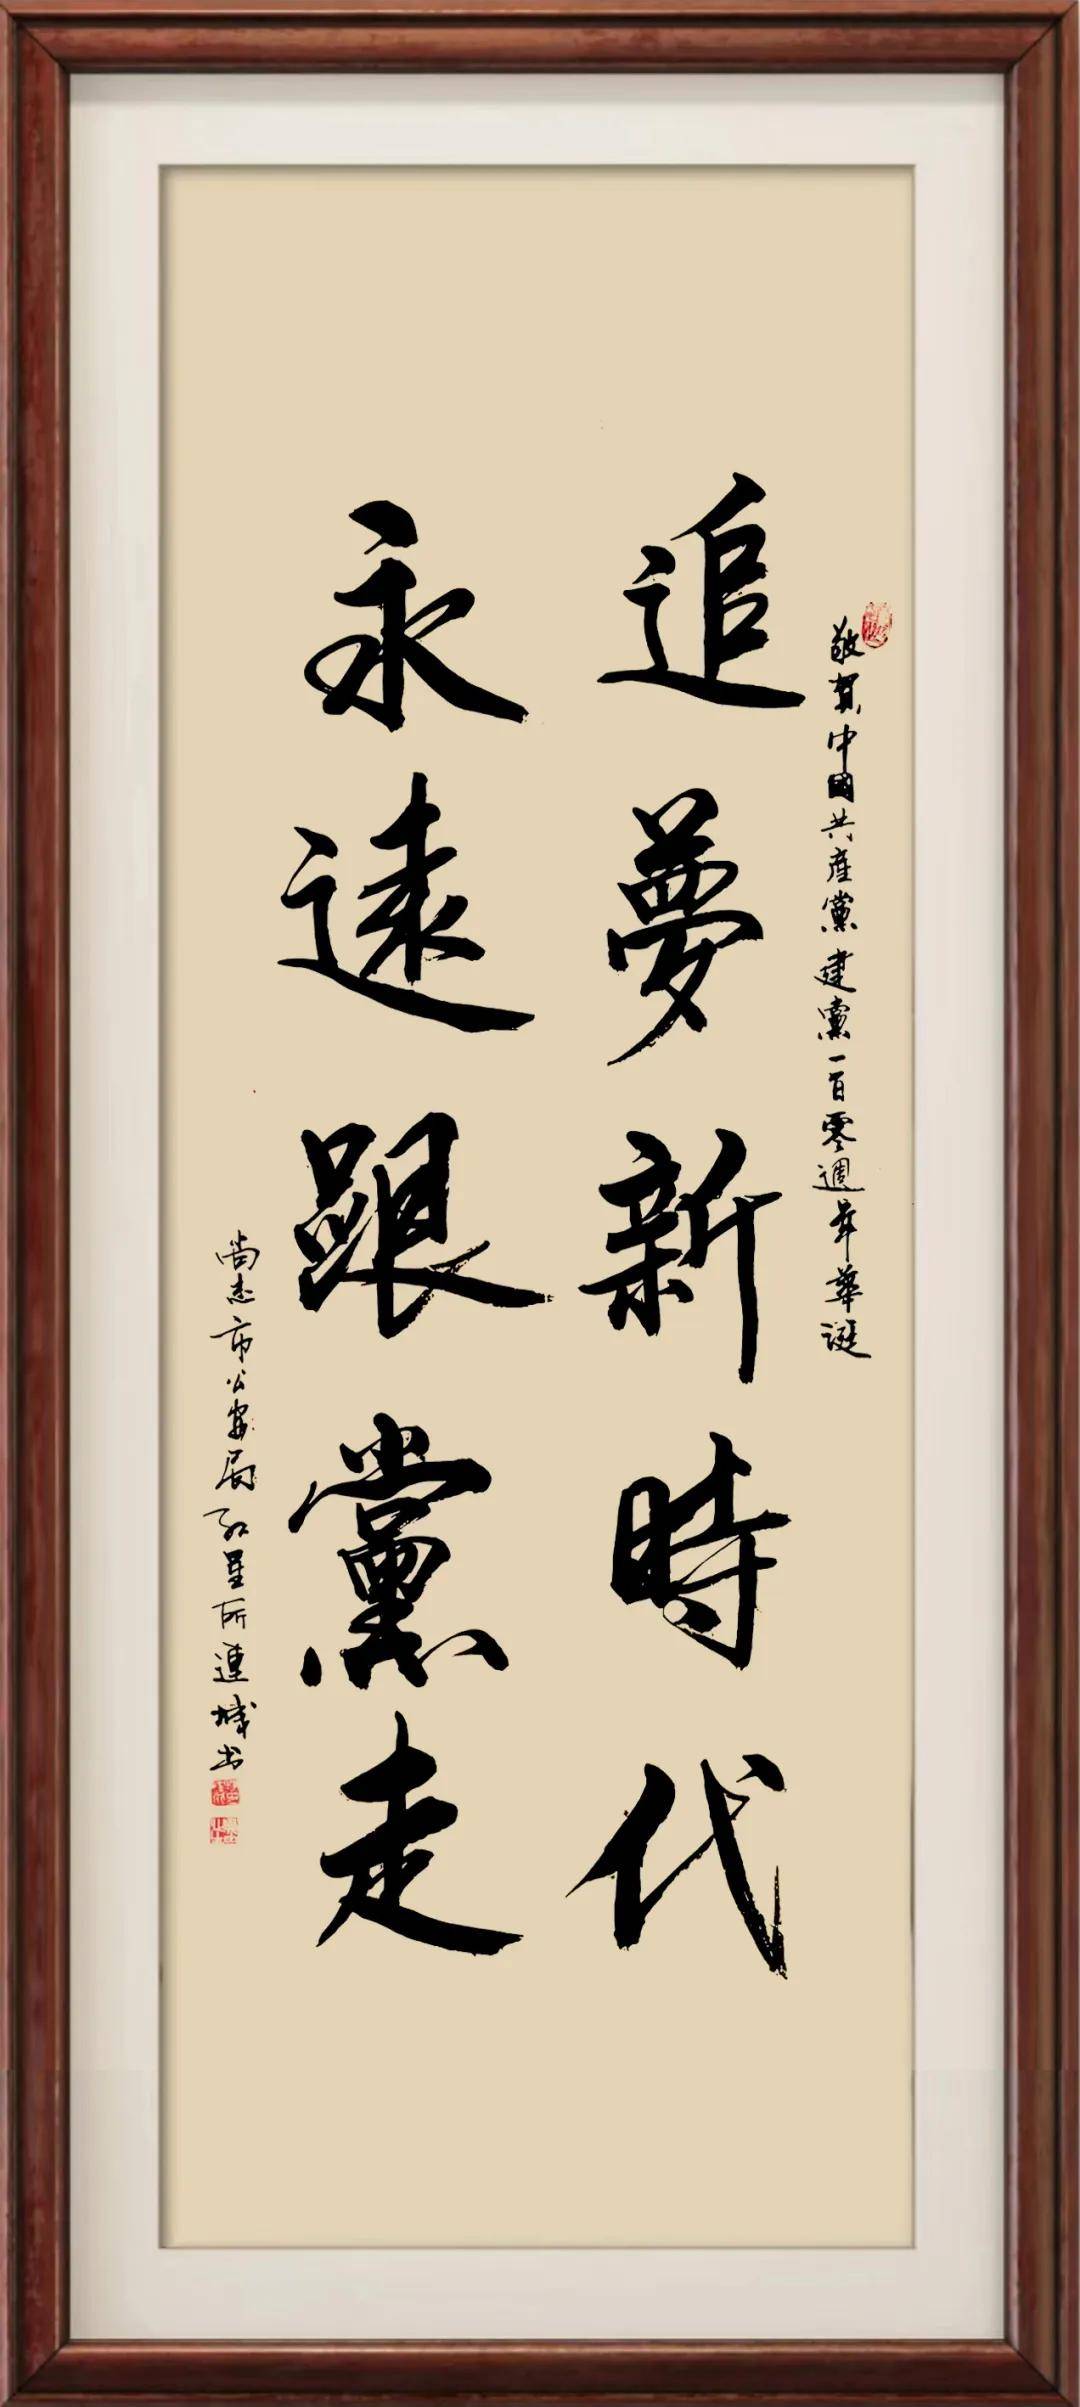 敬賀中國共產黨建黨一百零週年華誕
追夢新時代
永遠跟黨走
尚志市公安局紅星所連城书